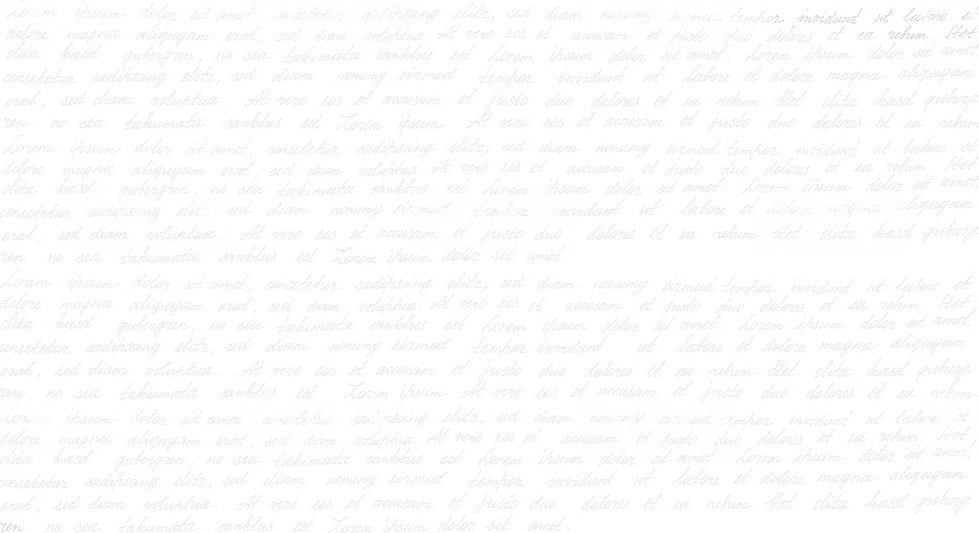 Lorem ipsum dolor sit amet, consetetur sadipscing elitr, sed diam nonumy eirmod tempor invidunt ut labore et
dolore magna aliquyam erat, sed diam voluptua. At vero eos et accusam et justo duo dolores et ea rebum. Stet
clita kasd gubergren, no sea takimata sanktus est Lorem ipsum dolor sit amet. Lorem ipsum dolor sit amet,
consetetur sadipscing elitr, sed diam nonumy eirmod tempor invidunt ut labore et dolore magna aliquyam
erat, sed diam voluptua. At vero eos et accusam et justo duo dolores et ea rebum. Stet clita kasd guberg
ren no sea takumata sanktus est Lorem ipsum At vero eos et accusam et justo duo dolores et ea rebum
Lorem ipsum dolor sit amet, consetetur sadipscing elitr, sed diam nonumy eirmod tempor invidunt ut labore et
dolore magna aliquyam erat, sed diam voluptua. At vero eos et accusam et justo duo dolores et ea rebum Stet
clita kasd gubergren, no sea takimata sanktus est Lorem ipsum dolor sit amet. Lorem ipsum dolor sit amet,
consetetur sadipscing elitr, sed diam nonumy eirmod tempor invidunt ut labore et dolore magna aliquyam
erat, sed diam voluptua. At vero eos et accusam et justo duo dolores et ea rebum Stet clita kasd guberg
ren no sea takumata sanktus est Lorem ipsum dolor sit amet.
Lorem ipsum dolor sit amet, consetetur sadipscing elitr, sed diam nonumy eirmod tempor invidunt ut labore et
dolore magna aliquyam erat, sed diam voluptua. At vero eos et accusam et justo duo dolores et ea rebum Stet
clita kasd gubergren, no sea takimata sanktus est Lorem ipsum dolor sit amet. Lorem ipsum dolor sit amet,
consetetur sadipscing elitr, sed diam nonumy eirmod tempor invidunt ut labore et dolore magna aliquyam
erat, sed diam voluptua. At vero eos et accusam et justo duo dolores et ea rebum. Stet clita kasd guberg
ren no sea takumata sanktus est Lorem ipsum At vero eos et accusam et justo duo dolores et ea rebum
Lorem ipsum dolor sit amet, consetetur sadipscing elitr, sed diam nonumy eirmod tempor invidunt ut labore et
dolore magna aliquyam erat, sed diam voluptua. At vero eos et accusam et justo duo dolores et ea rebum. Stet
clita kasd gubergren, no sea takimata sanktus est Lorem ipsum dolor sit amet. Lorem ipsum dolor sit amet,
consetetur sadipscing elitr, sed diam nonumy eirmod tempor invidunt ut labore et dolore magna aliquyam
erat, sed diam voluptua. At vero eos et accusam et justo duo dolores et ea rebum Stet clita kasd guberg
ren no sea takumata sanktus est Lorem ipsum dolor sit amet.